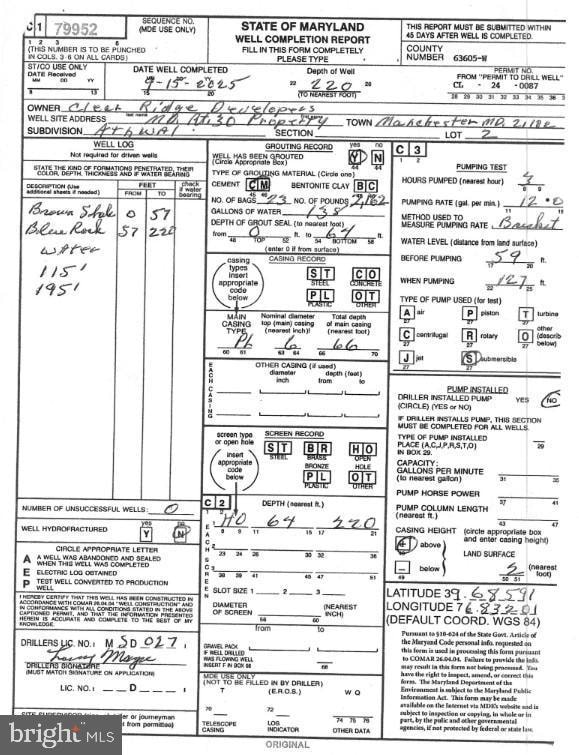 C 1 79952
SEQUENCE NO.
(MDE USE ONLY)
STATE OF MARYLAND
WELL COMPLETION REPORT
FILL IN THIS FORM COMPLETELY
PLEASE TYPE
THIS REPORT MUST BE SUBMITTED WITHIN
45 DAYS AFTER WELL IS COMPLETED.
COUNTY
NUMBER 63605-W
(THIS NUMBER IS TO BE PUNCHED
IN COLS. 3-6 ON ALL CARDS)
ST/CO USE ONLY
DATE Received
MM DD YY
8 13
DATE WELL COMPLETED
9-15-2025
15 20
Depth of Well
22 220 26
(TO NEAREST FOOT)
PERMIT NO.
FROM "PERMIT TO DRILL WELL"
CL - 24 -0087
28 29 30 31 32 33 34 35 36
OWNER Clear Ridge Developers
WELL SITE ADDRESS MD Rt. 30 Property TOWN Manchester MD. 21102
SUBDIVISION Athwal SECTION LOT 2
WELL LOG
Not required for driven wells
STATE THE KIND OF FORMATIONS PENETRATED, THEIR
COLOR, DEPTH, THICKNESS AND IF WATER BEARING
DESCRIPTION (Use
additional sheets if needed)
FEET
FROM TO
check
if water
bearing
Brown Shale 0 57
Blue Rock 57 220
Water
115'
195'
NUMBER OF UNSUCCESSFUL WELLS: 0
WELL HYDROFRACTURED
yes no
Y N
CIRCLE APPROPRIATE LETTER
A A WELL WAS ABANDONED AND SEALED
WHEN THIS WELL WAS COMPLETED
E ELECTRIC LOG OBTAINED
P TEST WELL CONVERTED TO PRODUCTION
WELL
I HEREBY CERTIFY THAT THIS WELL HAS BEEN CONSTRUCTED IN
ACCORDANCE WITH COMAR 26.04.04 "WELL CONSTRUCTION" AND
IN CONFORMANCE WITH ALL CONDITIONS STATED IN THE ABOVE
CAPTIONED PERMIT, AND THAT THE INFORMATION PRESENTED
HEREIN IS ACCURATE AND COMPLETE TO THE BEST OF MY
KNOWLEDGE.
DRILLERS LIC. NO. M SD 027
DRILLERS SIGNATURE
(MUST MATCH SIGNATURE ON APPLICATION)
LIC. NO. D
GROUTING RECORD
yes no
WELL HAS BEEN GROUTED
(Circle Appropriate Box)
Y N
44 44
TYPE OF GROUTING MATERIAL (Circle one)
CEMENT CM BENTONITE CLAY BC
NO. OF BAGS 23 NO. OF POUNDS 2,162
GALLONS OF WATER 138
DEPTH OF GROUT SEAL (to nearest foot)
from 0 ft. to 64 ft.
48 TOP 52 54 BOTTOM 58
(enter 0 if from surface)
CASING RECORD
casing
types
insert
appropriate
code
below
ST STEEL
CO CONCRETE
PL PLASTIC
OT OTHER
MAIN
CASING
TYPE
Nominal diameter
top (main) casing
(nearest inch)!
Total depth
of main casing
(nearest foot)
PL 6 66
60 61 63 64 66 70
OTHER CASING (if used)
diameter depth (feet)
inch from to
EACH CASING
SCREEN RECORD
screen type
or open hole
insert
appropriate
code
below
ST STEEL
BR BRASS BRONZE
HO OPEN HOLE
PL PLASTIC
OT OTHER
C 2
DEPTH (nearest ft.)
HO 64 220
8 9 11 15 17 21
23 24 26 30 32 36
38 39 41 45 47 51
EACH SCREEN
SLOT SIZE 1 2 3
DIAMETER
OF SCREEN
(NEAREST
INCH)
56 60
from to
GRAVEL PACK
IF WELL DRILLED
WAS FLOWING WELL
INSERT F IN BOX 68
68
MDE USE ONLY
(NOT TO BE FILLED IN BY DRILLER)
T (E.R.O.S.) W Q
70 72 74 75 76
TELESCOPE
CASING
LOG
INDICATOR
OTHER DATA
C 3
PUMPING TEST
HOURS PUMPED (nearest hour) 3
8 9
PUMPING RATE (gal. per min.) 12.0
METHOD USED TO
MEASURE PUMPING RATE Bucket
WATER LEVEL (distance from land surface)
BEFORE PUMPING 59 ft.
17 20
WHEN PUMPING 127 ft.
22 25
TYPE OF PUMP USED (for test)
A air
P piston
T turbine
C centrifugal
R rotary
O other
(describe
below)
J jet
S submersible
PUMP INSTALLED
DRILLER INSTALLED PUMP YES NO
(CIRCLE) (YES or NO)
IF DRILLER INSTALLS PUMP, THIS SECTION
MUST BE COMPLETED FOR ALL WELLS.
TYPE OF PUMP INSTALLED
PLACE (A,C,J,P,R,S,T,O)
IN BOX 29.
29
CAPACITY:
GALLONS PER MINUTE
(to nearest gallon)
31 35
PUMP HORSE POWER
37 41
PUMP COLUMN LENGTH
(nearest ft.)
43 47
CASING HEIGHT (circle appropriate box
and enter casing height)
+ above
LAND SURFACE
- below
2 (nearest
foot)
49 50 51
LATITUDE 39.68591
LONGITUDE 76.83201
(DEFAULT COORD. WGS 84)
Pursuant to §10-624 of the State Govt. Article of
the Maryland Code personal info. requested on
this form is used in processing this form pursuant
to COMAR 26.04.04. Failure to provide the info.
may result in this form not being processed. You
have the right to inspect, amend, or correct this
form. The Maryland Department of the
Environment is subject to the Maryland Public
Information Act. This form may be made
available on the Internet via MDE's website and is
subject to inspection or copying, in whole or in
part, by the public and other governmental
agencies, if not protected by federal or state law.
bright MLS
ORIGINAL